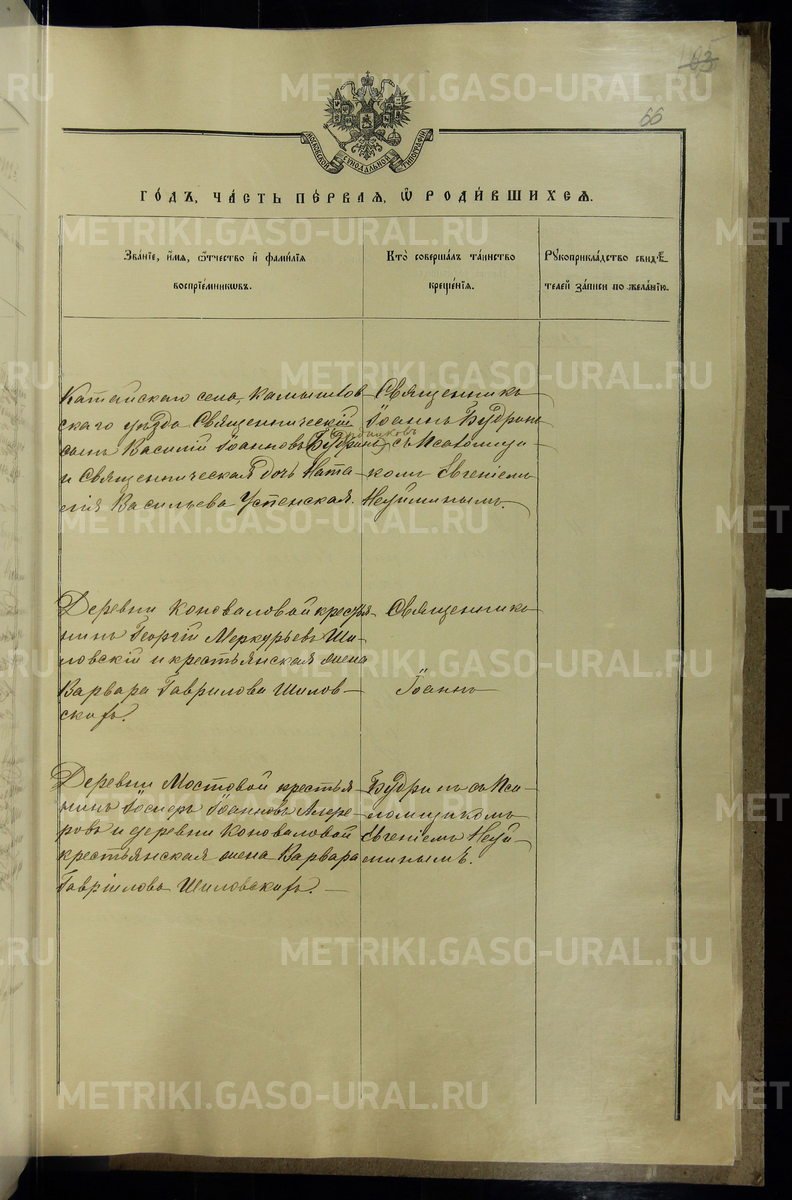 63
66
МОСКОВСКОЙ СѴНОДАЛЬНОЙ ТИПОГРАФІИ
ГО́ДЪ, ЧА́СТЬ ПЕ́РВАЯ, Ѡ҆ РОДИ́ВШИХСЯ.
Зва́нїе, и҆́мя, ѻ҆́тчество и҆ фами́лїя
воспрїе́мникѡвъ.
Кто̀ соверша́лъ та́инство
креще́нїя.
Рꙋкоприкла́дство свидѣ́-
телей за́писи по жела́нїю.
Катайскаго села, Камышлов-
скаго уѣзда Священническій
сынъ Василій Іоанновъ
и Священническая дочь Ната-
лія Васильева Успенская.
Священникъ
Іоаннъ Будринъ
съ Псаломщи-
комъ Евгеніемъ
Неуйминымъ.
Деревни Коноваловой крестья-
нинъ Георгій Меркурьевъ Ши-
ловскій и крестьянская жена
Варвара Гаврилова Шилов-
скихъ.
Священникъ
Іоаннъ
Деревни Мостовой крестья
нинъ Іоанновъ
и деревни Коноваловой
крестьянская жена Варвара
Гавріилова Шиловскихъ.
Будринъ съ Пса-
ломщикомъ
Евгеніемъ Неуй-
минымъ.
METRIKI.GASO-URAL.RU